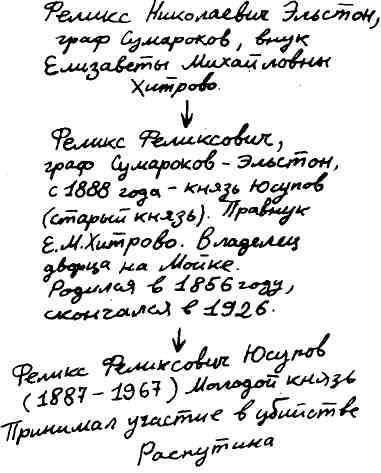 Феликс Николаевич Эльстон,
граф Сумароков, внук
Елизаветы Михайловны
Хитрово.
Феликс Феликсович,
граф Сумароков-Эльстон,
с 1888 года - князь Юсупов
(старый князь). Правнук
Е.М.Хитрово. Владелец
дворца на Мойке.
Родился в 1856 году,
скончался в 1926.
Феликс Феликсович Юсупов
(1887-1967) Молодой князь
Принимал участие в убийстве
Распутина